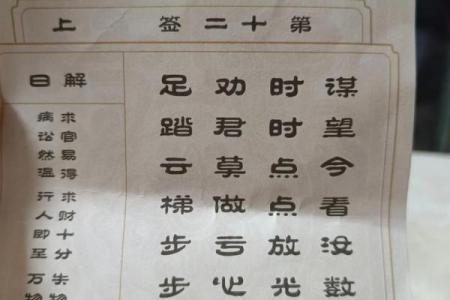 第十二签 上
谋望今看没数
时时点点放光
劝君莫做亏心
足踏云梯步步
解曰
求官易得 求财十分 失物
病讼然温 行人即至 万物